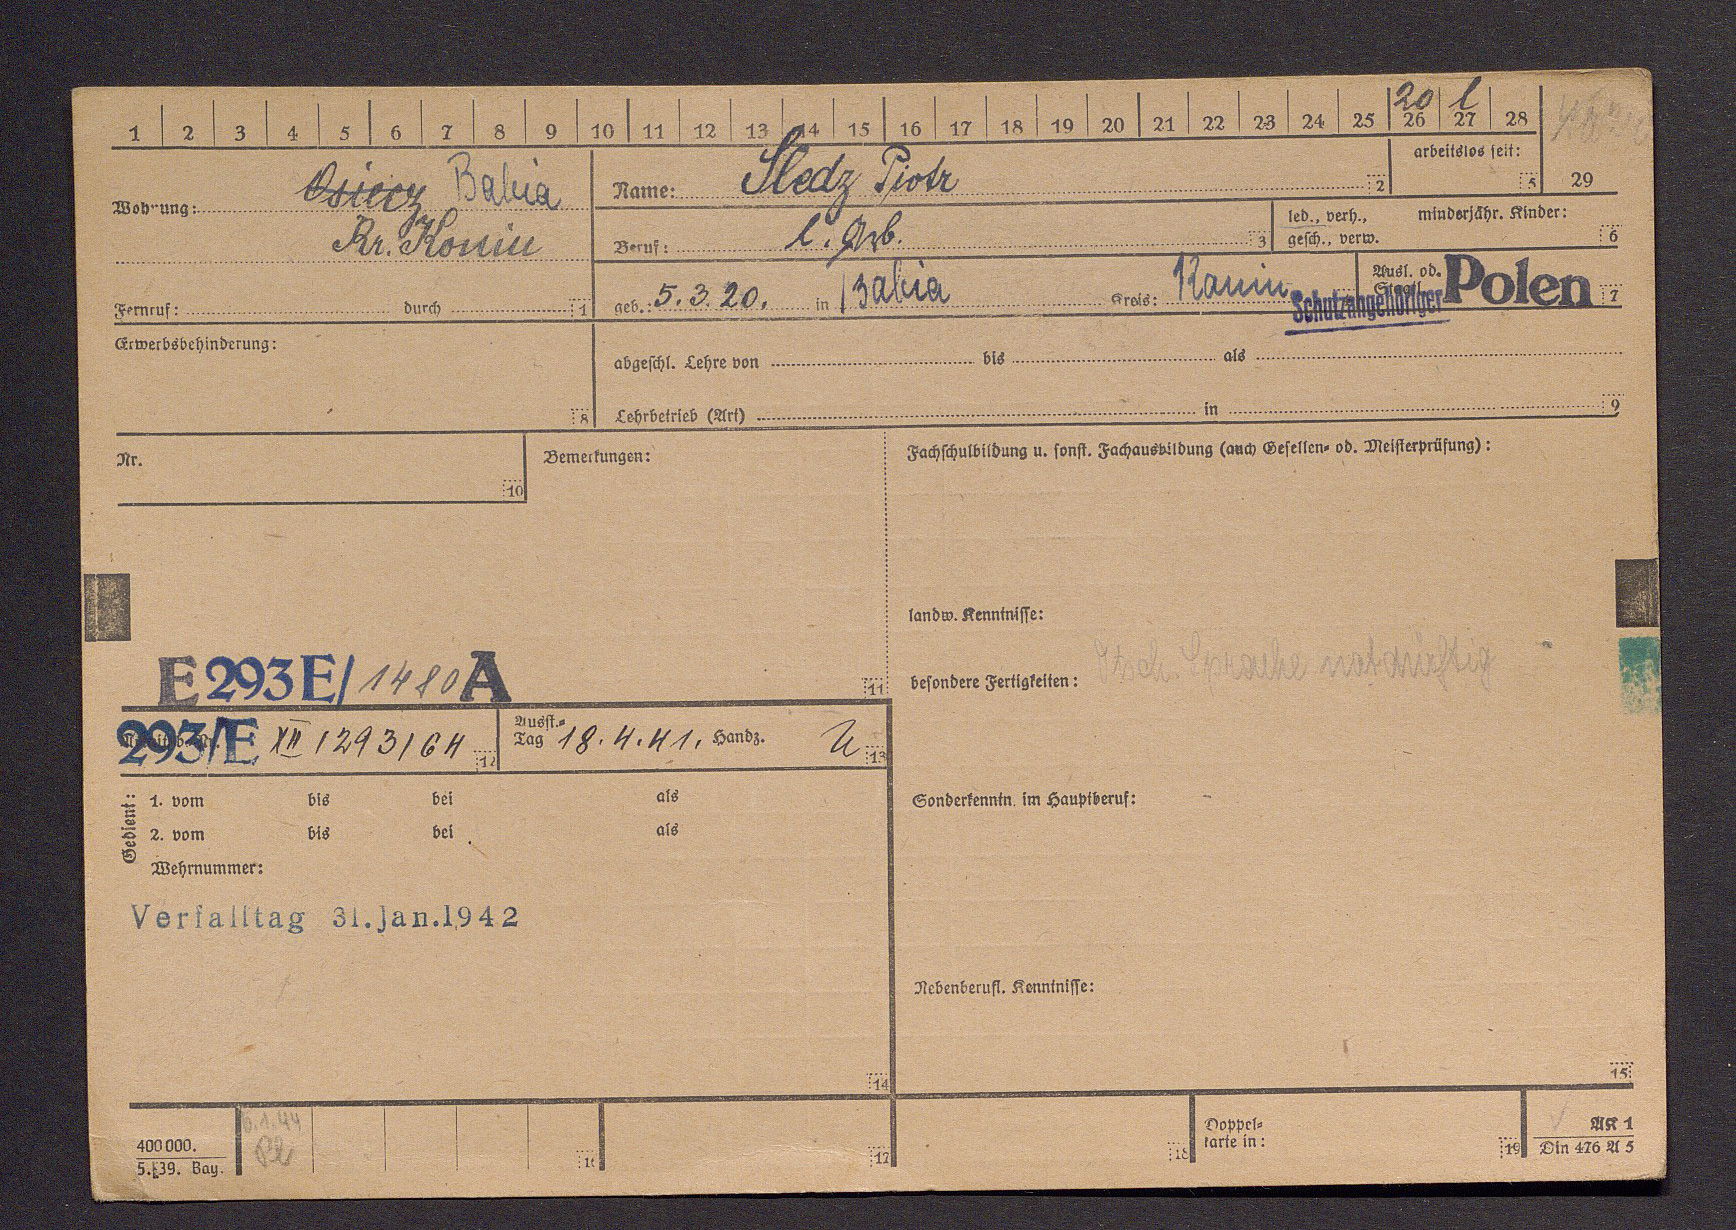 20 l
1 2 3 4 5 6 7 8 9 10 11 12 13 14 15 16 17 18 19 20 21 22 23 24 25 26 27 28
arbeitslos seit: 5 29
Wohnung: Osiecz Babia
Kr. Konin
Name: Sledz Piotr 2
Beruf: l. Arb. 3
led., verh., gesch., verw.
minderjähr. Kinder: 6
Fernruf: durch 1
geb.: 5.3.20. in Babia Kreis: Konin
Ausl. od. Staatl. Polen 7
Schutzangehöriger
Erwerbsbehinderung: 8
abgeschl. Lehre von bis als
Lehrbetrieb (Art) in 9
Nr. 10
Bemerkungen:
Fachschulbildung u. sonst. Fachausbildung (auch Gesellen- od. Meisterprüfung):
landw. Kenntnisse:
besondere Fertigkeiten: Dtsch. Sprache notdürftig
E 293 E/ 1480 A 11
293/E XII 1293/64 12
Ausst.-Tag 18.4.41. Handz. 13
Gedient:
1. vom bis bei als
2. vom bis bei als
Wehrnummer:
Sonderkenntn. im Hauptberuf:
Verfalltag 31.Jan.1942
Nebenberufl. Kenntnisse:
14 15
400 000.
5. 39. Bay.
16 17 18
Doppel-
karte in: 19
AK 1
Din 476 A 5